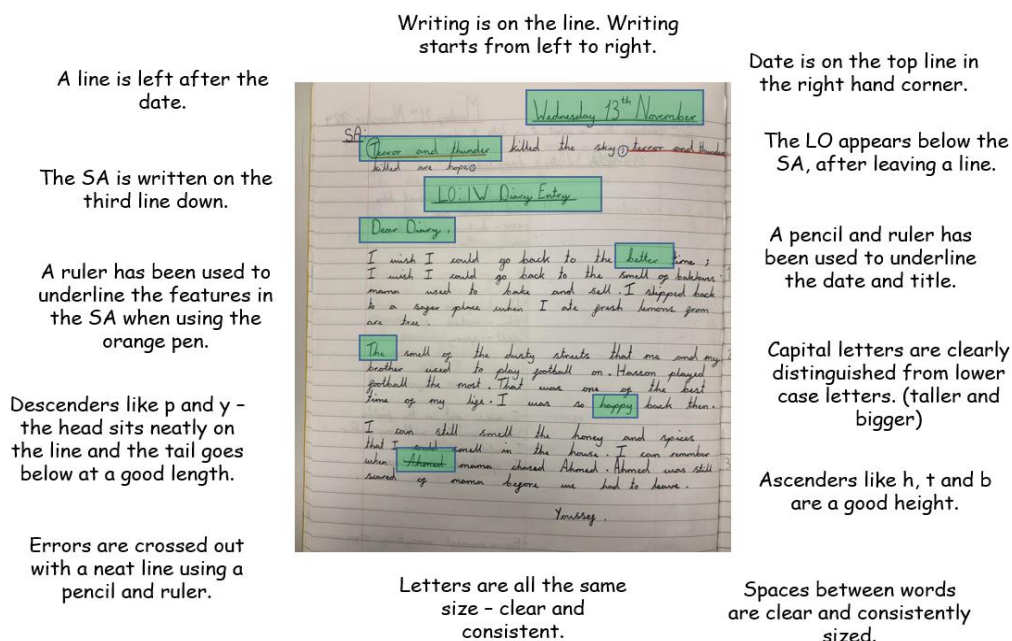 Writing is on the line. Writing
starts from left to right.
A line is left after the
date.
The SA is written on the
third line down.
A ruler has been used to
underline the features in
the SA when using the
orange pen.
Descenders like p and y –
the head sits neatly on
the line and the tail goes
below at a good length.
Errors are crossed out
with a neat line using a
pencil and ruler.
Wednesday 13th November
SA:
Terror and thunder killed the sky; terror and thunder
killed are hope.
LO: IW Diary Entry
Dear Diary,
I wish I could go back to the better time;
I wish I could go back to the smell of baklava
mama used to bake and sell. I slipped back
to a sager place when I ate fresh lemons from
are tree.
The smell of the dusty streets that me and my
brother used to play football on. Hasson played
football the most. That was one of the best
time of my life. I was so happy back then.
I can still smell the honey and spices
that I could smell in the house. I can remember
when Ahmed mama chased Ahmed. Ahmed was still
scared of mama before we had to leave.
Youssef.
Date is on the top line in
the right hand corner.
The LO appears below the
SA, after leaving a line.
A pencil and ruler has
been used to underline
the date and title.
Capital letters are clearly
distinguished from lower
case letters. (taller and
bigger)
Ascenders like h, t and b
are a good height.
Letters are all the same
size – clear and
consistent.
Spaces between words
are clear and consistently
sized.